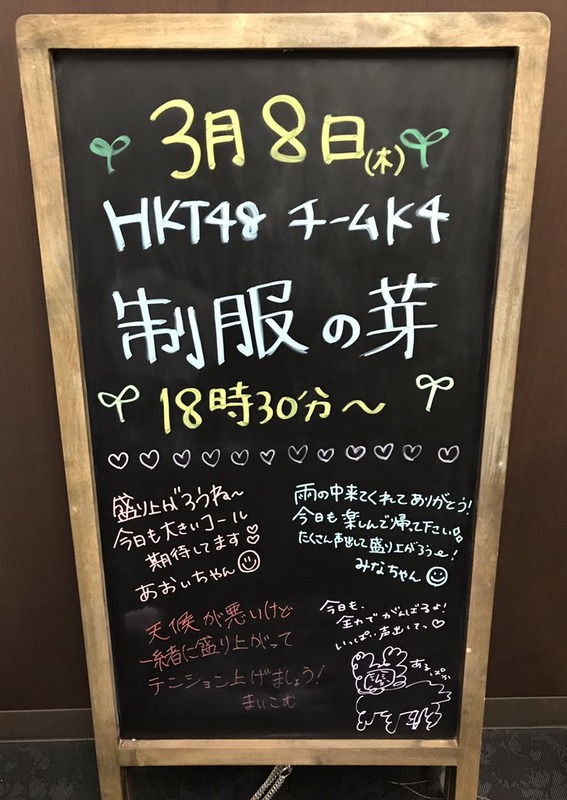 3月8日(木)
HKT48 チームK4
制服の芽
18時30分～
盛り上がろうね～
今日も大きいコール
期待してます♡
あおいちゃん
雨の中来てくれてありがとう!
今日も楽しんで帰って下さい
たくさん声出して盛り上がろうぜ!
みなちゃん
天候が悪いけど
一緒に盛り上がって
テンション上げましょう!
まいこむ
今日も、
全力でがんばるよ!
いっぱい声出してっ♡
あるぱか